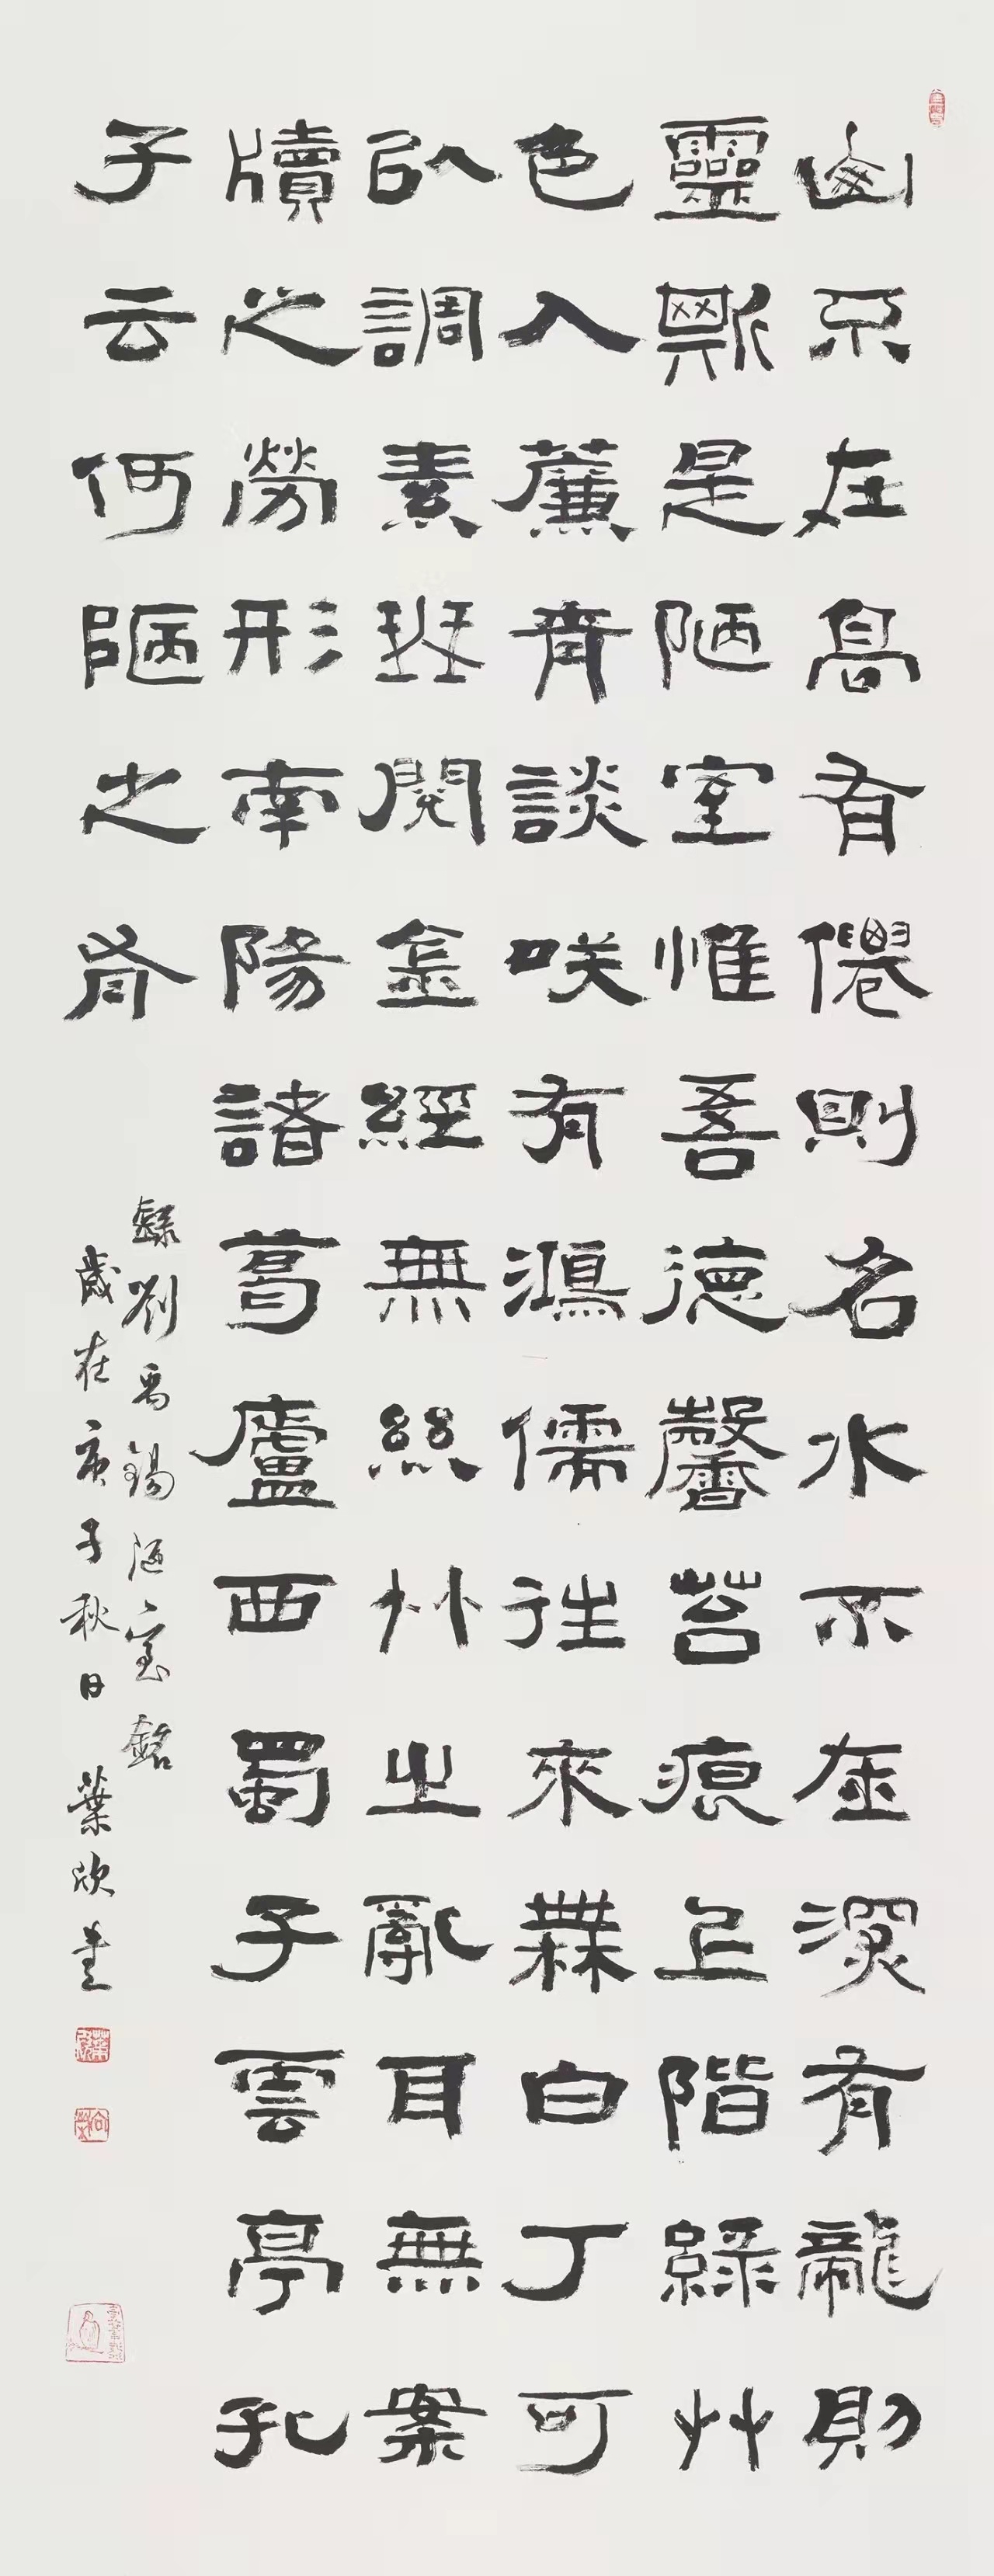 山不在高有僊則名水不在深有龍則
靈斯是陋室惟吾德馨苔痕上階綠艸
色入簾青談咲有鴻儒往來無白丁可
以調素琴閱金經無絲竹之亂耳無案
牘之勞形南陽諸葛廬西蜀子雲亭孔
子云何陋之有
錄劉禹錫陋室銘
歲在庚子秋日 葉欣書